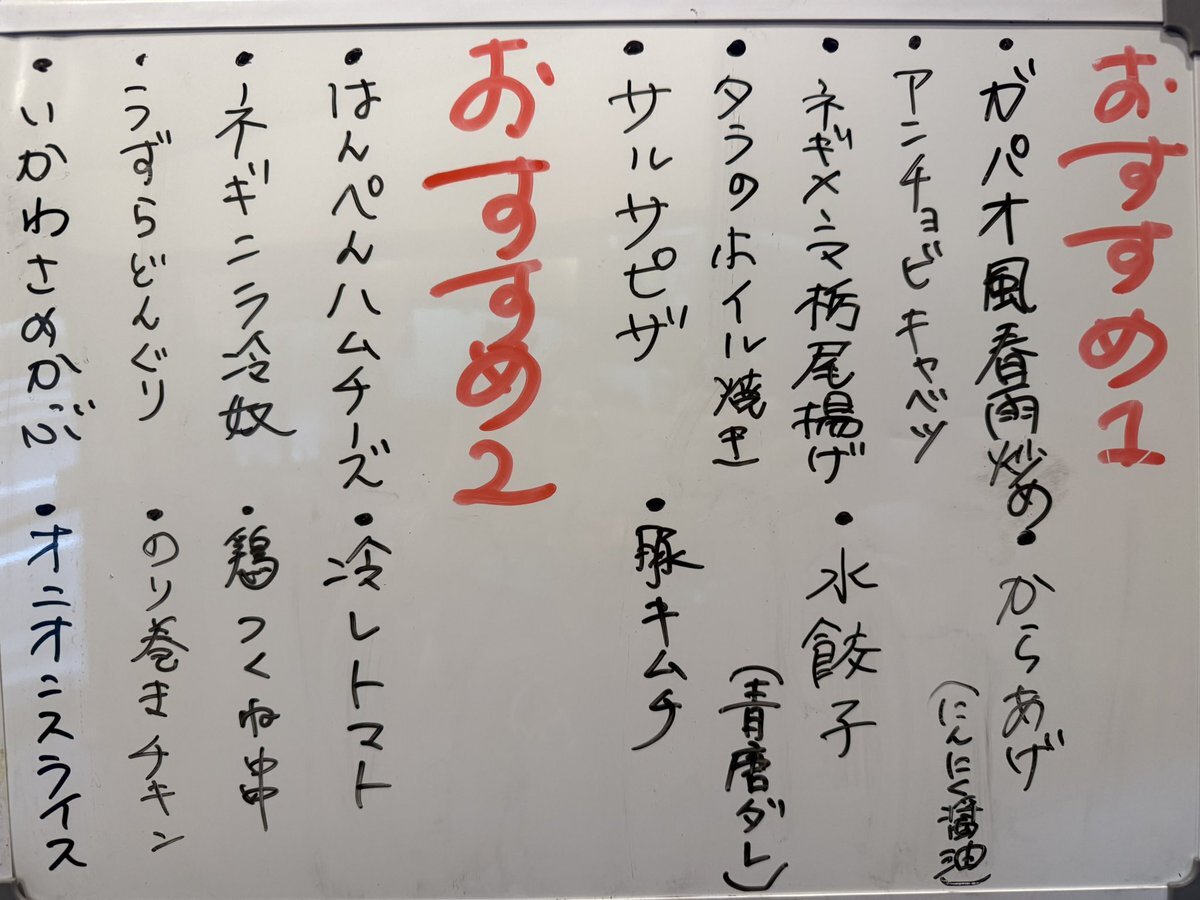 おすすめ1
・ガパオ風春雨炒め
・からあげ
(にんにく醤油)
・アンチョビキャベツ
・ネギメンマ栃尾揚げ
・水餃子
(青唐ダレ)
・タラのホイル焼き
・サルサピザ
・豚キムチ
おすすめ2
・はんぺんハムチーズ
・冷しトマト
・ネギニラ冷奴
・鶏つくね串
・うずらどんぐり
・のり巻きチキン
・いかわさめかぶ
・オニオンスライス